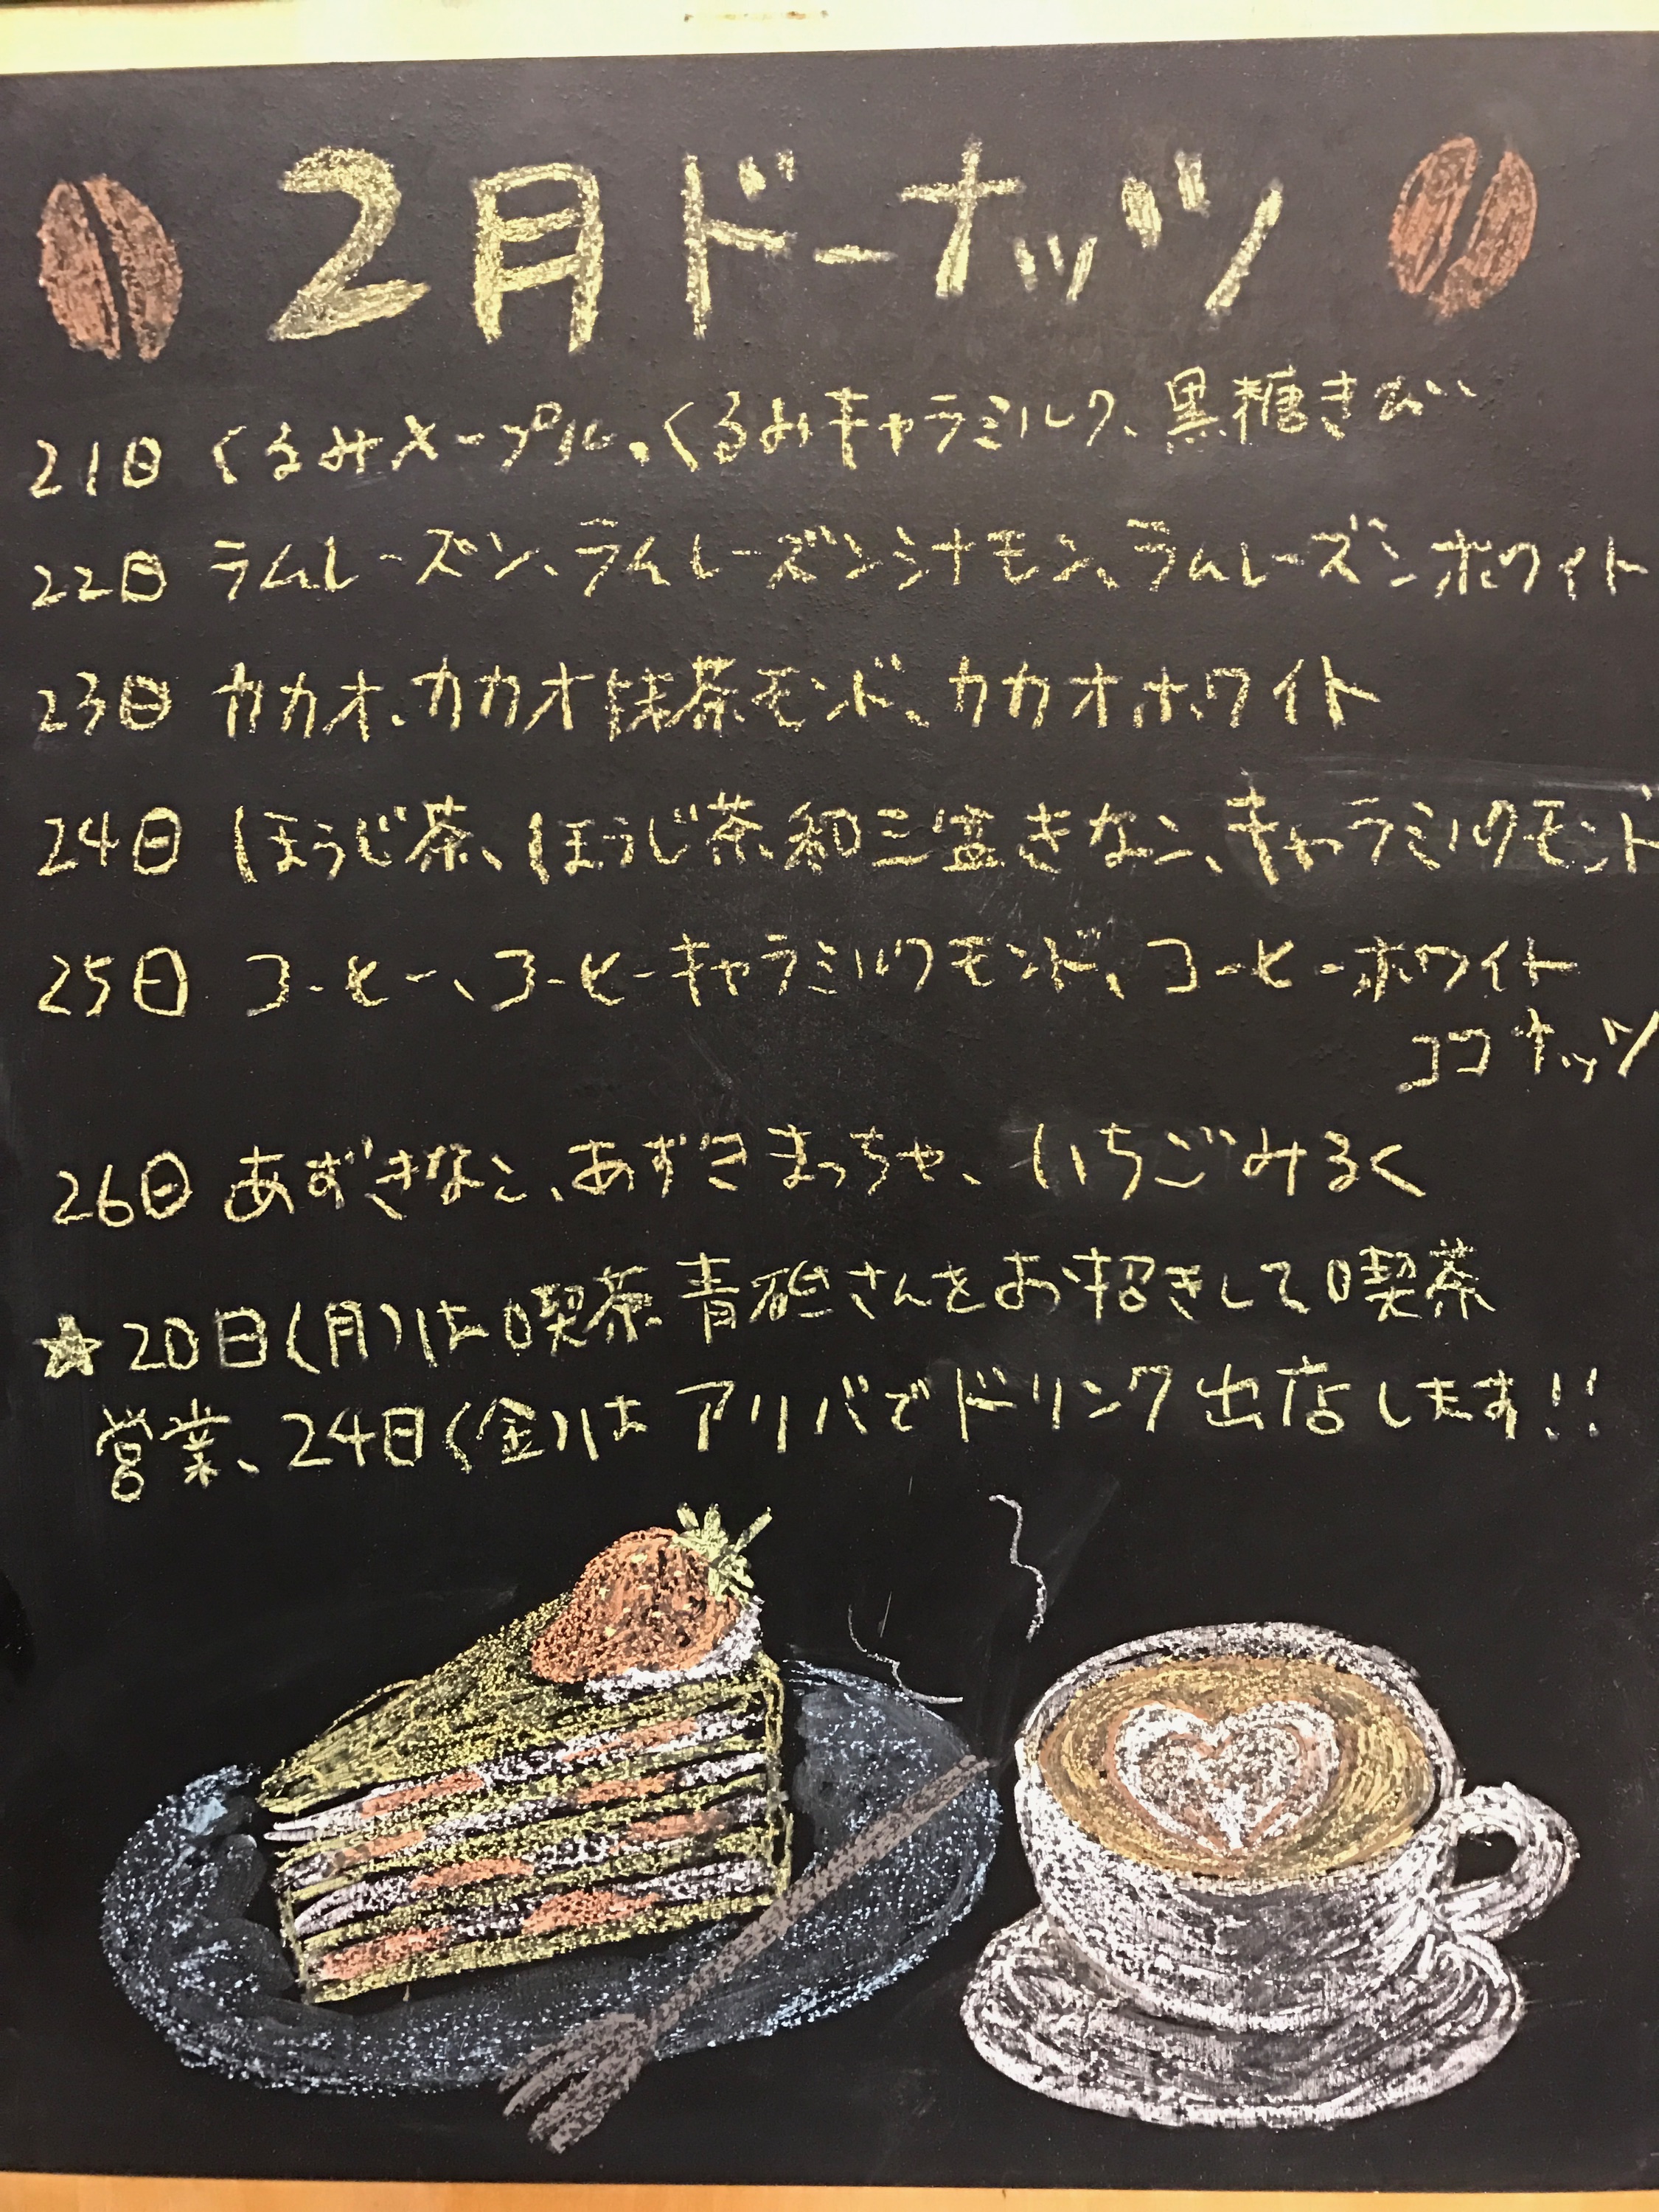 2月ドーナッツ
21日 くるみメープル、くるみキャラミルク、黒糖きび
22日 ラムレーズン、ラムレーズンシナモン、ラムレーズンホワイト
23日 カカオ、カカオ抹茶モンド、カカオホワイト
24日 ほうじ茶、ほうじ茶和三盆きなこ、キャラミルクモンド
25日 コーヒー、コーヒーキャラミルクモンド、コーヒーホワイト
ココナッツ
26日 あずきなこ、あずきまっちゃ、いちごみるく
★20日(月)は喫茶 青砥さんをお招きして喫茶
営業、24日(金)は アリバでドリンク出店します!!